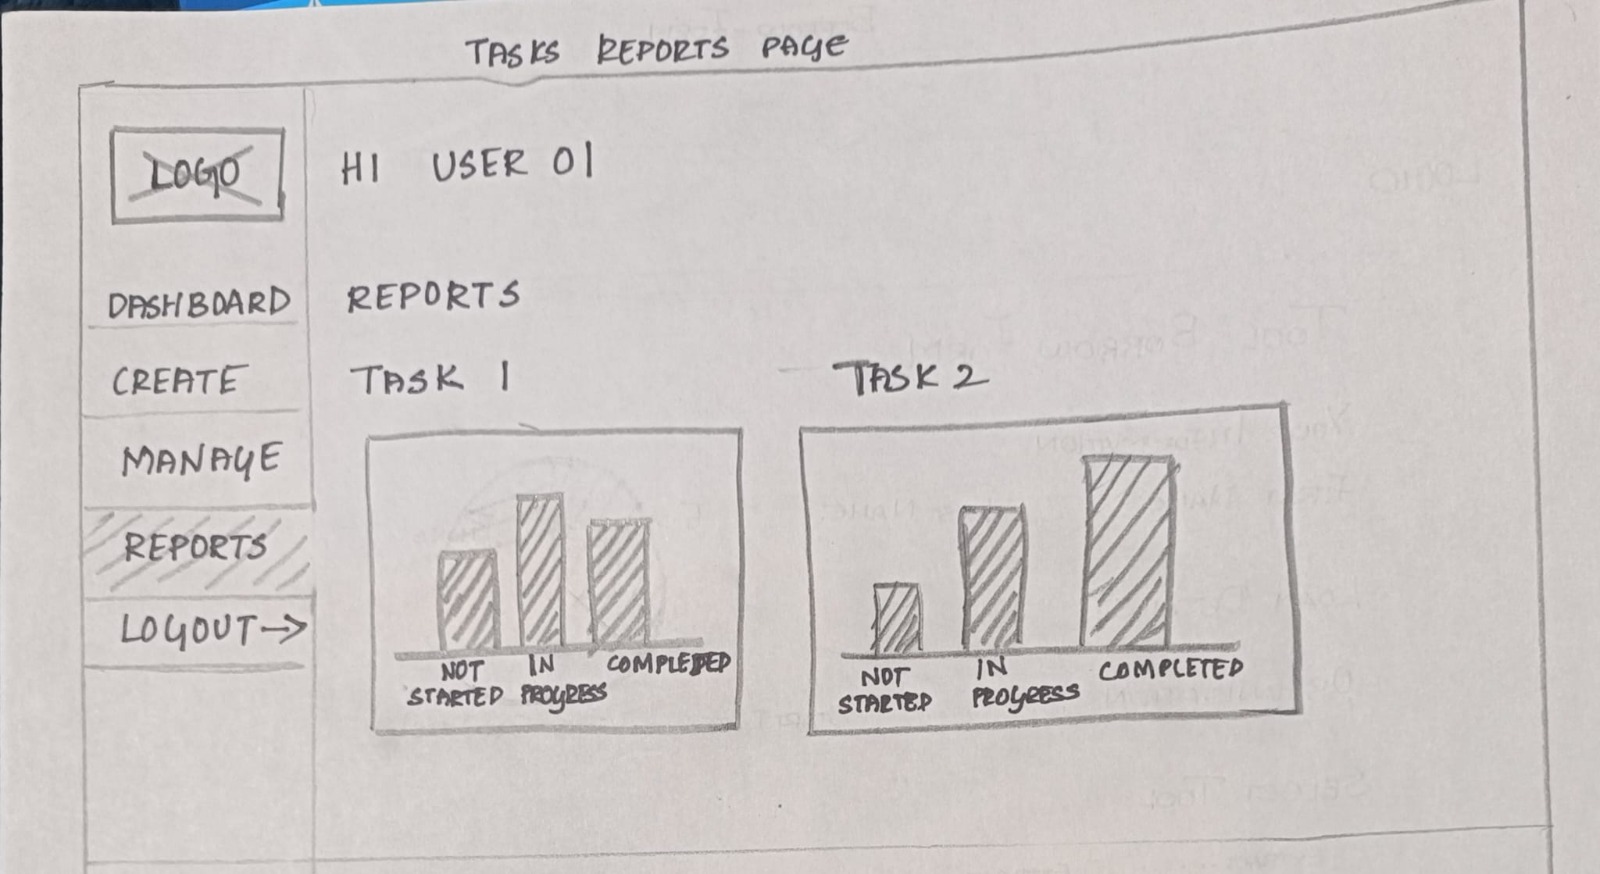 TASKS REPORTS PAGE
LOGO
HI USER 01
DASHBOARD
CREATE
MANAGE
REPORTS
LOGOUT→
REPORTS
TASK 1
NOT STARTED
IN PROGRESS
COMPLETED
TASK 2
NOT STARTED
IN PROGRESS
COMPLETED